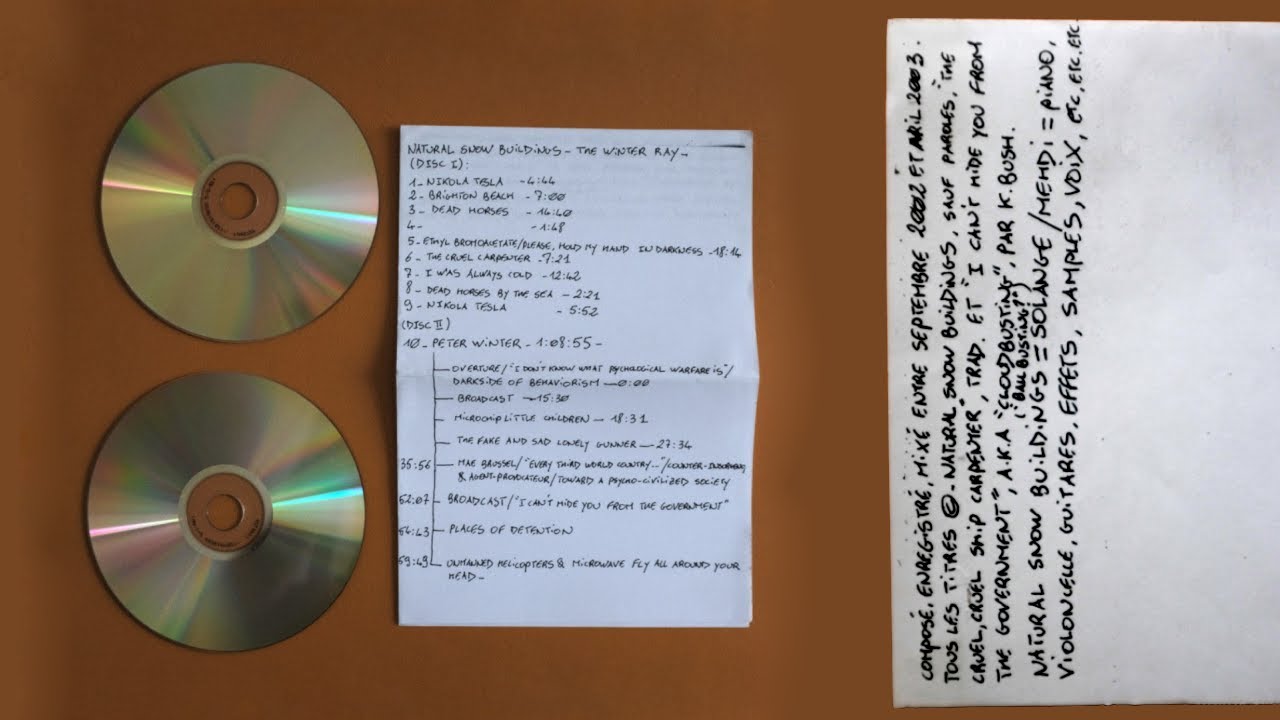 NATURAL SNOW BUILDINGS - THE WINTER RAY -
(DISC I):
1 - NIKOLA TESLA - 4:44
2 - BRIGHTON BEACH - 7:00
3 - DEAD HORSES - 14:40
4 - - 1:48
5 - ETHYL BROMOACETATE/PLEASE, HOLD MY HAND IN DARKNESS - 18:14
6 - THE CRUEL CARPENTER - 7:21
7 - I WAS ALWAYS COLD - 12:42
8 - DEAD HORSES BY THE SEA - 2:21
9 - NIKOLA TESLA - 5:52
(DISC II)
10 - PETER WINTER - 1:08:55 -
OVERTURE/"I DON'T KNOW WHAT PSYCHOLOGICAL WARFARE IS"/
DARKSIDE OF BEHAVIORISM - 0:00
BROADCAST - 15:30
MICROCHIP LITTLE CHILDREN - 18:31
THE FAKE AND SAD LONELY GUNNER - 27:34
35:56 MAE BRUSSEL/"EVERY THIRD WORLD COUNTRY..."/COUNTER-
& AGENT-PROVOCATEUR/TOWARD A PSYCHO-CIVILIZED SOCIETY
52:07 BROADCAST/"I CAN'T HIDE YOU FROM THE GOVERNMENT"
54:43 PLACES OF DETENTION
59:49 UNMANNED HELICOPTERS & MICROWAVE FLY ALL AROUND YOUR
HEAD -
COMPOSÉ, ENREGISTRÉ, MIXÉ ENTRE SEPTEMBRE 2002 ET AVRIL 2003.
TOUS LES TITRES @ - NATURAL SNOW BUILDINGS, SAUF PAROLES, "THE
CRUEL, CRUEL SHIP CARPENTER", TRAD. ET "I CAN'T HIDE YOU FROM
THE GOVERNMENT", A.K.A "CLOUDBUSTING", PAR K. BUSH.
(BALL BUSTING?")
NATURAL SNOW BUILDINGS = SOLANGE/MEHDI = PIANO,
VIOLONCELLE, GUITARES, EFFETS, SAMPLES, VOIX, ETC, ETC, ETC.